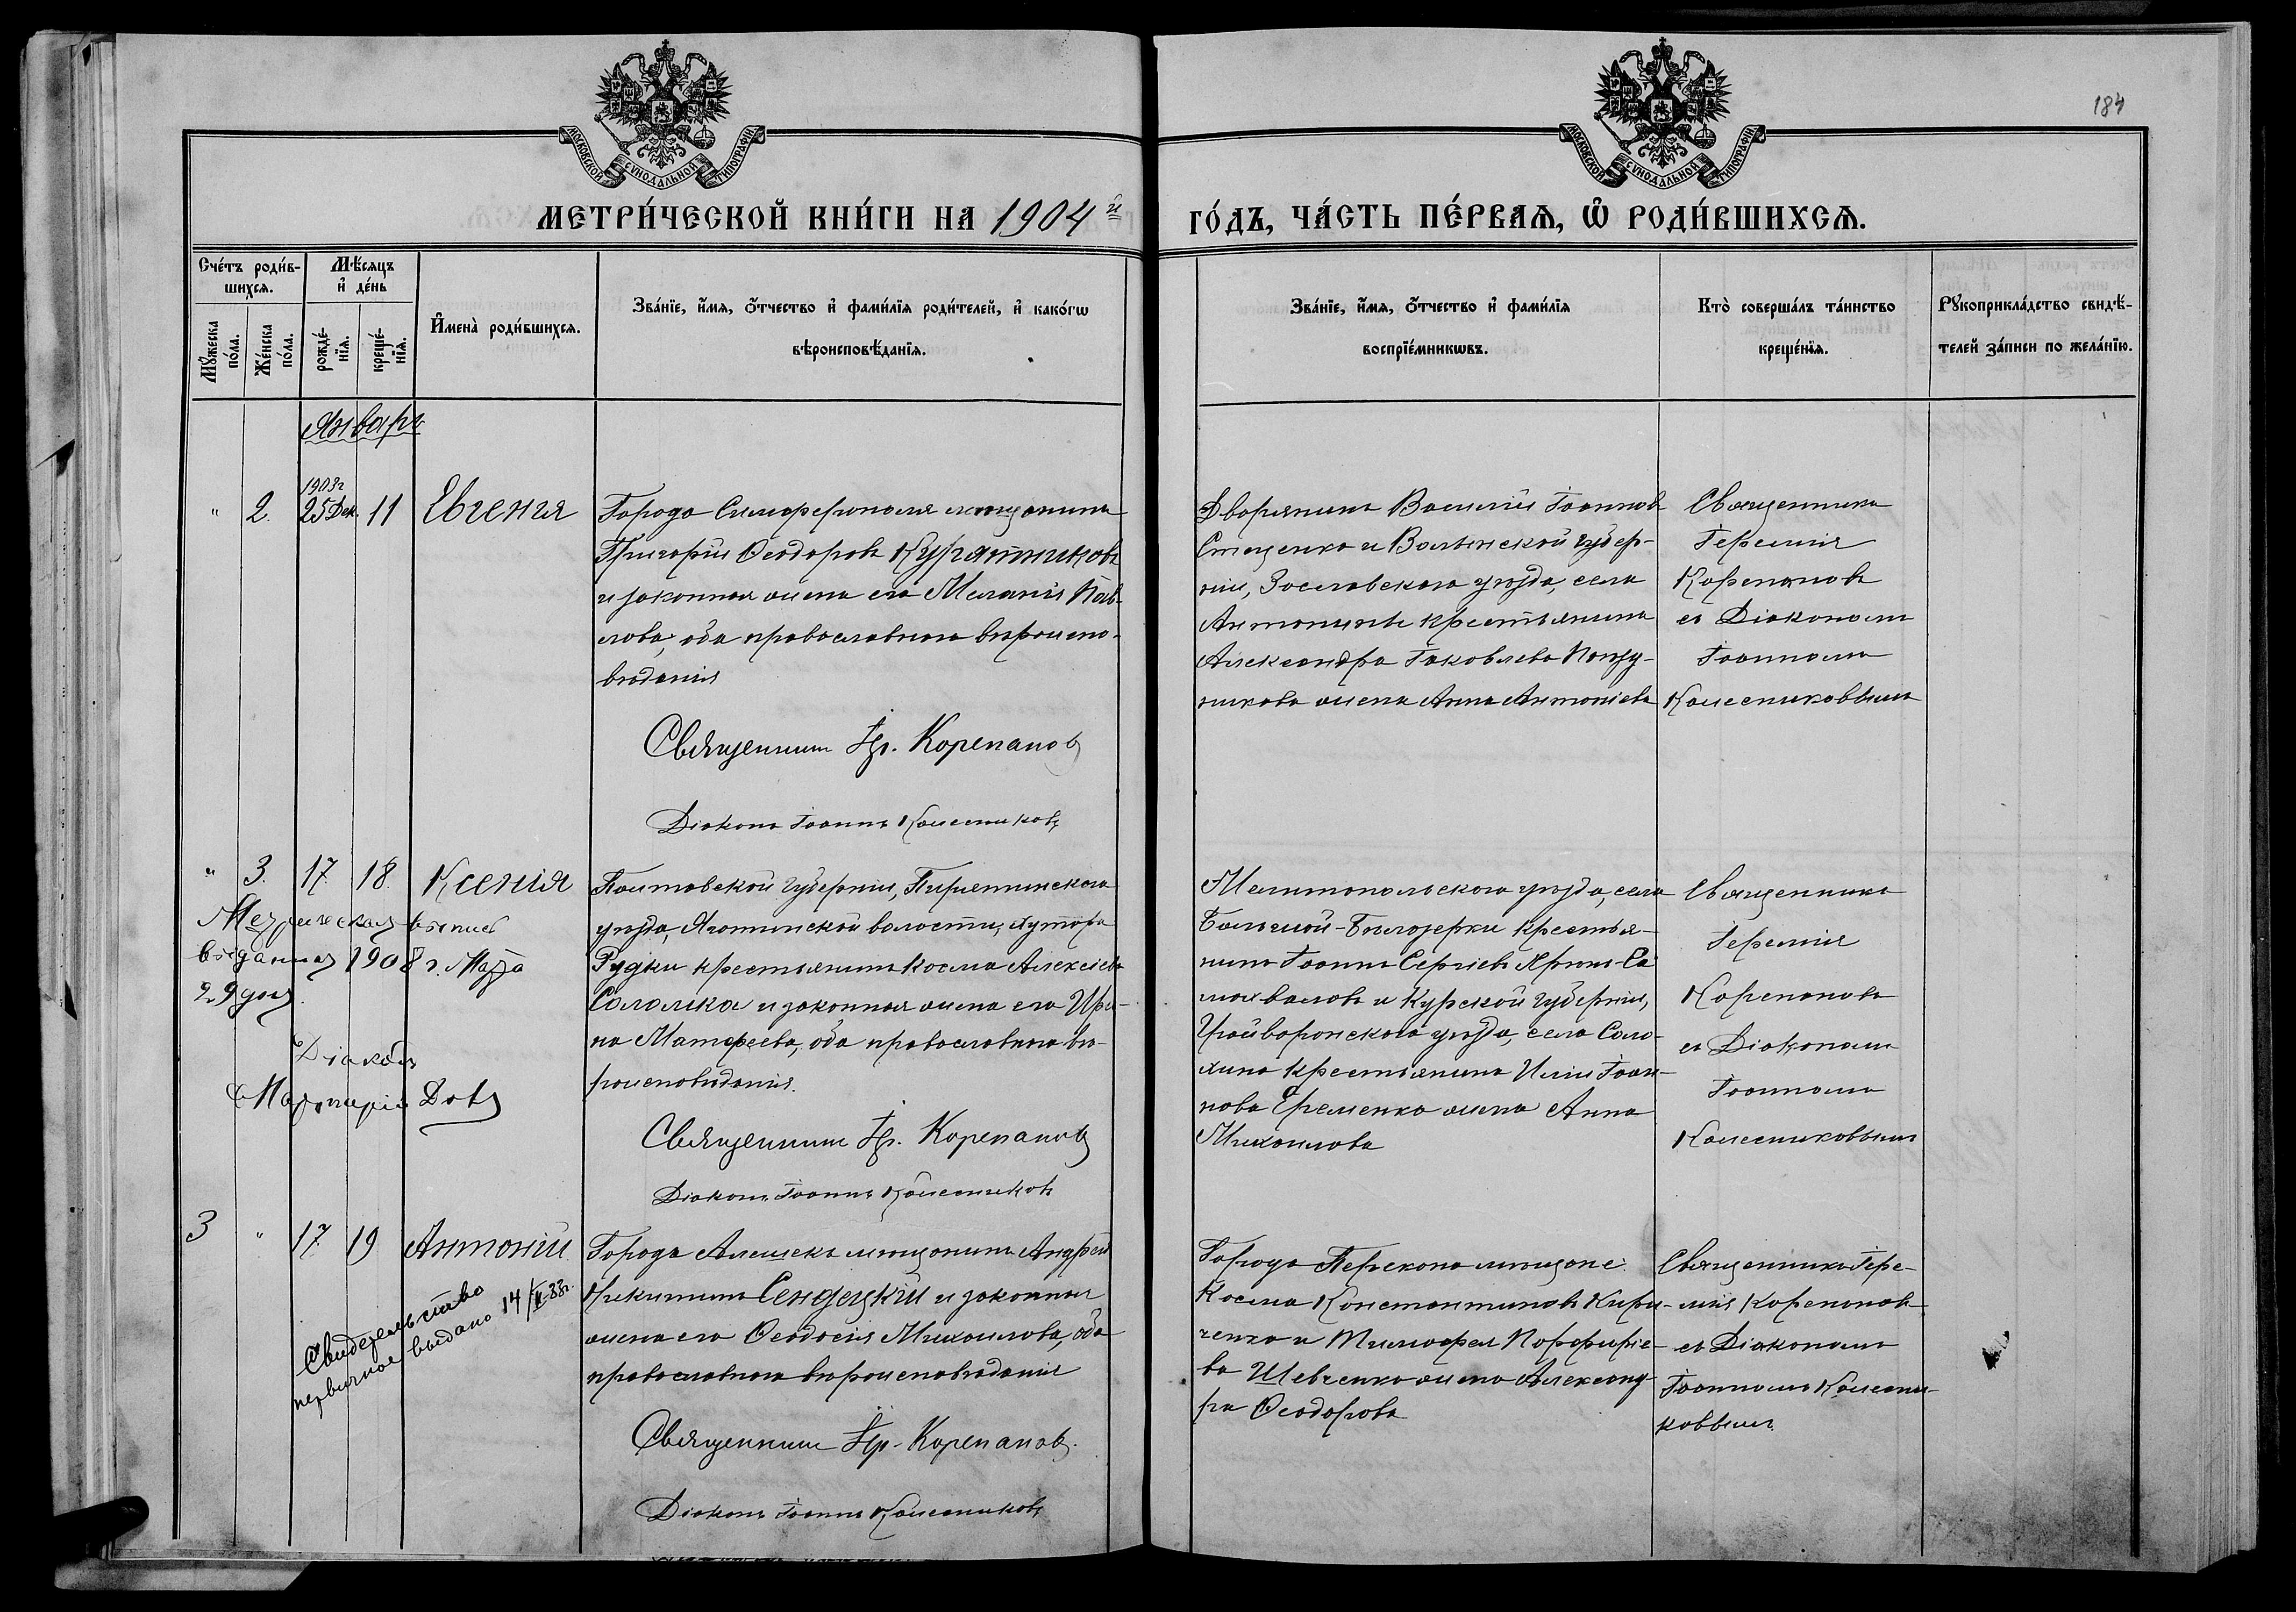 184
МОСКОВСКОЙ СѴНОДАЛЬНОЙ ТИПОГРАФІИ
МОСКОВСКОЙ СѴНОДАЛЬНОЙ ТИПОГРАФІИ
МЕТРИ́ЧЕСКОЙ КНИ́ГИ НА 1904й ГО́ДЪ, ЧА́СТЬ ПЕ́РВАЯ, Ѡ РОДИ́ВШИХСЯ.
Сче́тъ роди́в-
шихся.
Мꙋ́жеска по́ла.
Же́нска по́ла.
Мѣ́сяцъ и де́нь
рожде́-нїя.
креще́-нїя.
И҆мена̀ роди́вшихся.
Зва́нїе, и҆́мя, ѻ҆́тчество и҆ фами́лїя роди́телей, и҆ како́гѡ
вѣроисповѣ́данїя.
Зва́нїе, и҆́мя, ѻ҆́тчество и҆ фами́лїя
воспрїе́мникѡвъ.
Кто̀ соверша́лъ та́инство
креще́нїя.
Рꙋкоприкла́дство свидѣ́-
телей за́писи по жела́нїю.
Январь
" 2. 1903г 25 Дек. 11 Евгенія
Города Симферополя мѣщанинъ
Григорій Ѳеодоровъ Курятниковъ
и законная жена его Меланія Пав-
лова, оба православнаго вѣроиспо-
вѣданія
Священникъ Іер. Корепановъ
Діаконъ Іоаннъ Колесниковъ
Дворянинъ Василій Іоанновъ
Стеценко и Волынской губер-
ніи, Заславскаго уѣзда, села
Антонинъ крестьянина
Александра Іаковлева
жена Анна Антоніева
Священникъ
Іеремія
Корепановъ
съ Діакономъ
Іоанномъ
Колесниковымъ
" 3. 17. 18. Ксенія
Метрическая выпись
выданная 1908 г. Марта
29 дня.
Діаконъ
Полтавской губерніи, Пирятинскаго
уѣзда, Яготинской волости, хутора
Рудки крестьянинъ Косма Алексіевъ
Соломка и законная жена его Ири-
на Матфеева, оба православнаго вѣ-
роисповѣданія.
Священникъ Іер. Корепановъ
Діаконъ Іоаннъ Колесниковъ
Мелитопольскаго уѣзда, села
Большой-Бѣлозерки крестья-
нинъ Іоаннъ Сергіевъ
и Курской губерніи,
Грайворонскаго уѣзда, села Соло-
хина крестьянина Иліи Іоан-
нова Еременко жена Анна
Михаилова
Священникъ
Іеремія
Корепановъ
съ Діакономъ
Іоанномъ
Колесниковымъ
3 " 17. 19 Антоній
Свидетельство
первичное выдано 14/II-33г.
Города Алешекъ мѣщанинъ Андрей
Никитинъ Сендецкій и законная
жена его Ѳеодосія Михаилова, оба
православнаго вѣроисповѣданія
Священникъ Іер. Корепановъ.
Діаконъ Іоаннъ Колесниковъ
Города Перекопа мѣщане:
Косма Константиновъ Кири-
ченко и Тимофея Порфиріе-
ва Шевченко жена Александ-
ра Ѳеодорова
Священникъ Іере-
мія Корепановъ
съ Діакономъ
Іоанномъ Колесни-
ковымъ.